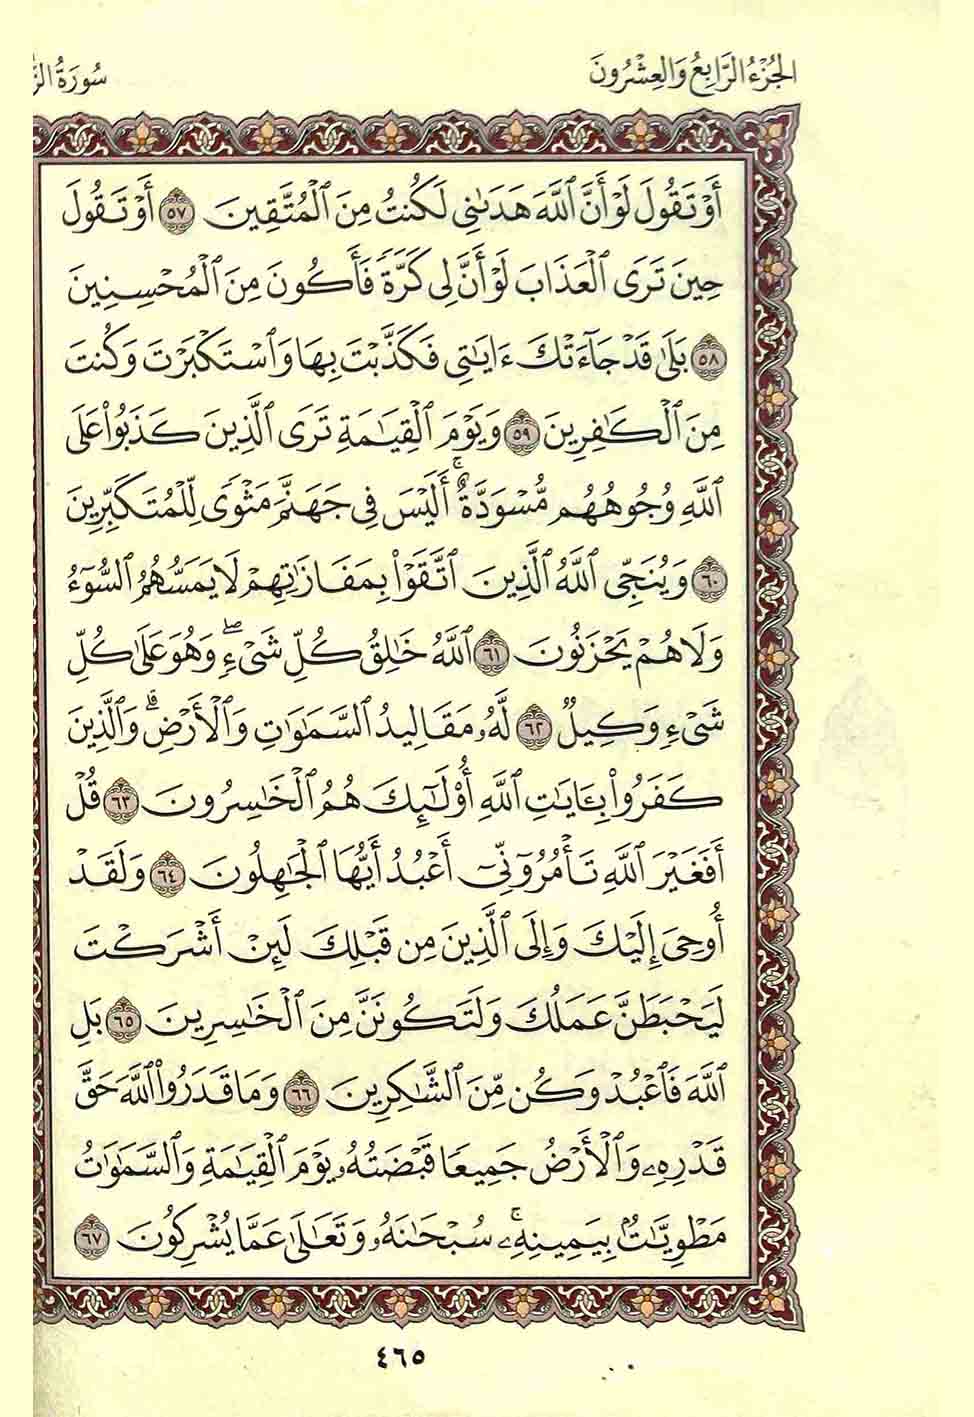 الجُزْءُ الرَّابِعُ وَالعِشْرُونَ
سُورَةُ الزُّ
أَوْ تَقُولَ لَوْ أَنَّ ٱللَّهَ هَدَىٰنِي لَكُنتُ مِنَ ٱلْمُتَّقِينَ ٥٧ أَوْ تَقُولَ
حِينَ تَرَى ٱلْعَذَابَ لَوْ أَنَّ لِي كَرَّةً فَأَكُونَ مِنَ ٱلْمُحْسِنِينَ
٥٨ بَلَىٰ قَدْ جَآءَتْكَ ءَايَٰتِي فَكَذَّبْتَ بِهَا وَٱسْتَكْبَرْتَ وَكُنتَ
مِنَ ٱلْكَٰفِرِينَ ٥٩ وَيَوْمَ ٱلْقِيَٰمَةِ تَرَى ٱلَّذِينَ كَذَبُوا۟ عَلَى
ٱللَّهِ وُجُوهُهُم مُّسْوَدَّةٌ ۚ أَلَيْسَ فِي جَهَنَّمَ مَثْوًى لِّلْمُتَكَبِّرِينَ
٦٠ وَيُنَجِّي ٱللَّهُ ٱلَّذِينَ ٱتَّقَوْا۟ بِمَفَازَتِهِمْ لَا يَمَسُّهُمُ ٱلسُّوٓءُ
وَلَا هُمْ يَحْزَنُونَ ٦١ ٱللَّهُ خَٰلِقُ كُلِّ شَيْءٍ ۖ وَهُوَ عَلَىٰ كُلِّ
شَيْءٍ وَكِيلٌ ٦٢ لَّهُۥ مَقَالِيدُ ٱلسَّمَٰوَٰتِ وَٱلْأَرْضِ ۗ وَٱلَّذِينَ
كَفَرُوا۟ بِـَٔايَٰتِ ٱللَّهِ أُو۟لَٰٓئِكَ هُمُ ٱلْخَٰسِرُونَ ٦٣ قُلْ
أَفَغَيْرَ ٱللَّهِ تَأْمُرُوٓنِّيٓ أَعْبُدُ أَيُّهَا ٱلْجَٰهِلُونَ ٦٤ وَلَقَدْ
أُوحِيَ إِلَيْكَ وَإِلَى ٱلَّذِينَ مِن قَبْلِكَ لَئِنْ أَشْرَكْتَ
لَيَحْبَطَنَّ عَمَلُكَ وَلَتَكُونَنَّ مِنَ ٱلْخَٰسِرِينَ ٦٥ بَلِ
ٱللَّهَ فَٱعْبُدْ وَكُن مِّنَ ٱلشَّٰكِرِينَ ٦٦ وَمَا قَدَرُوا۟ ٱللَّهَ حَقَّ
قَدْرِهِۦ وَٱلْأَرْضُ جَمِيعًا قَبْضَتُهُۥ يَوْمَ ٱلْقِيَٰمَةِ وَٱلسَّمَٰوَٰتُ
مَطْوِيَّٰتٌۢ بِيَمِينِهِۦ ۚ سُبْحَٰنَهُۥ وَتَعَٰلَىٰ عَمَّا يُشْرِكُونَ ٦٧
٤٦٥